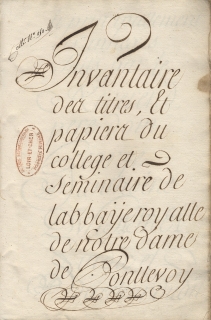 Invantaire
des titres, Et
papiers du
college et
Seminaire de
labbaÿe royalle
de notre dame
de Pontlevoy
LOIR-ET-CHER